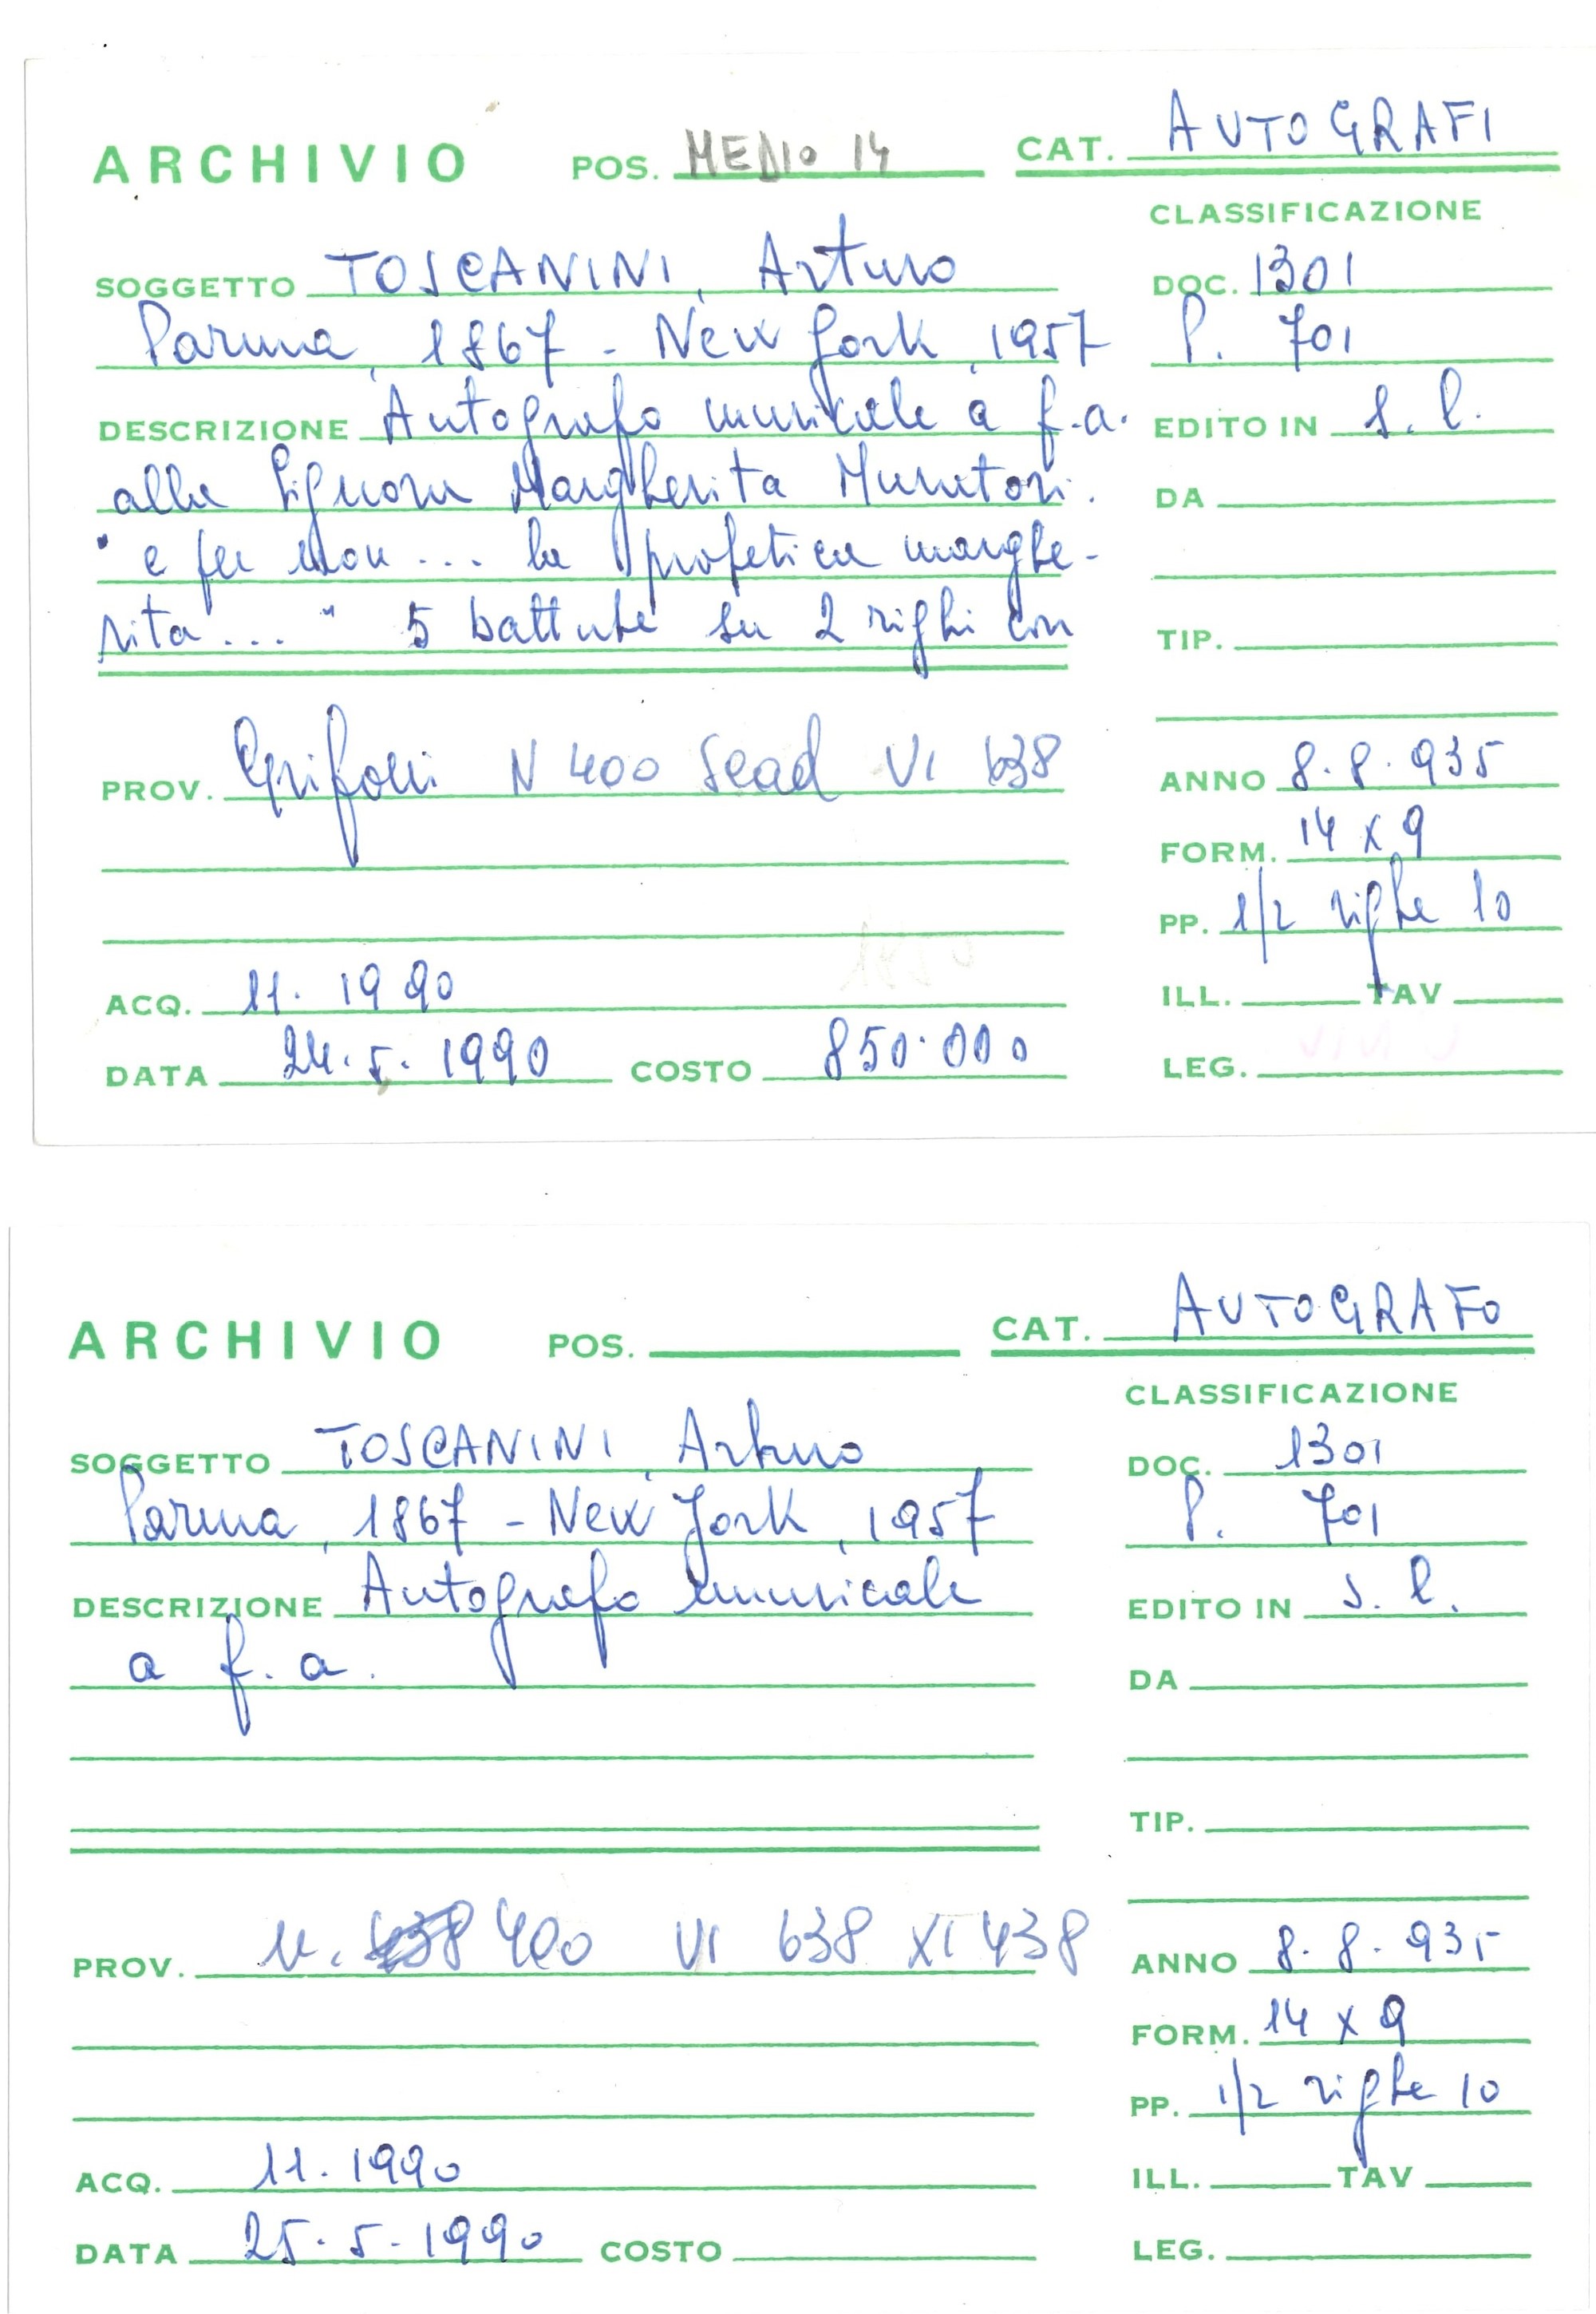 ARCHIVIO POS. MEDIO 14 CAT. AUTOGRAFI
CLASSIFICAZIONE
SOGGETTO TOSCANINI, Arturo DOC. 1301
Parma, 1867 - New York, 1957 P. 701
DESCRIZIONE Autografo musicale a f.a. EDITO IN s. l.
alla Signora Margherita Muratori. DA
" e fu Mon ... la profetica marghe-
rita ... " 5 battute su 2 righi con TIP.
PROV. Grifoni N 400 Scad VI 638 ANNO 8.8.935
FORM. 14 x 9
PP. 1/2 righe 10
ACQ. 11. 1990 ILL. TAV
DATA 24.5.1990 COSTO 850.000 LEG.
ARCHIVIO POS. CAT. AUTOGRAFO
CLASSIFICAZIONE
SOGGETTO TOSCANINI, Arturo DOC. 1301
Parma, 1867 - New York, 1957 P. 701
DESCRIZIONE Autografo musicale EDITO IN s. l.
a f. a. DA
TIP.
PROV. N. 400 VI 638 XI 438 ANNO 8.8.935
FORM. 14 x 9
PP. 1/2 righe 10
ACQ. 11.1990 ILL. TAV
DATA 25.5.1990 COSTO LEG.